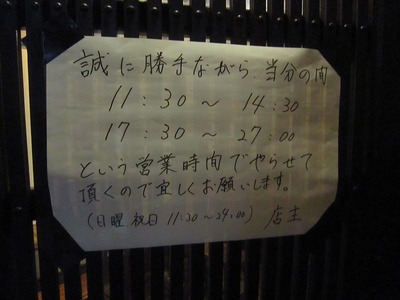 誠に勝手ながら 当分の間
11:30 ～ 14:30
17:30 ～ 27:00
という営業時間でやらせて
頂くので宜しくお願いします。
(日曜 祝日 11:30～24:00) 店主